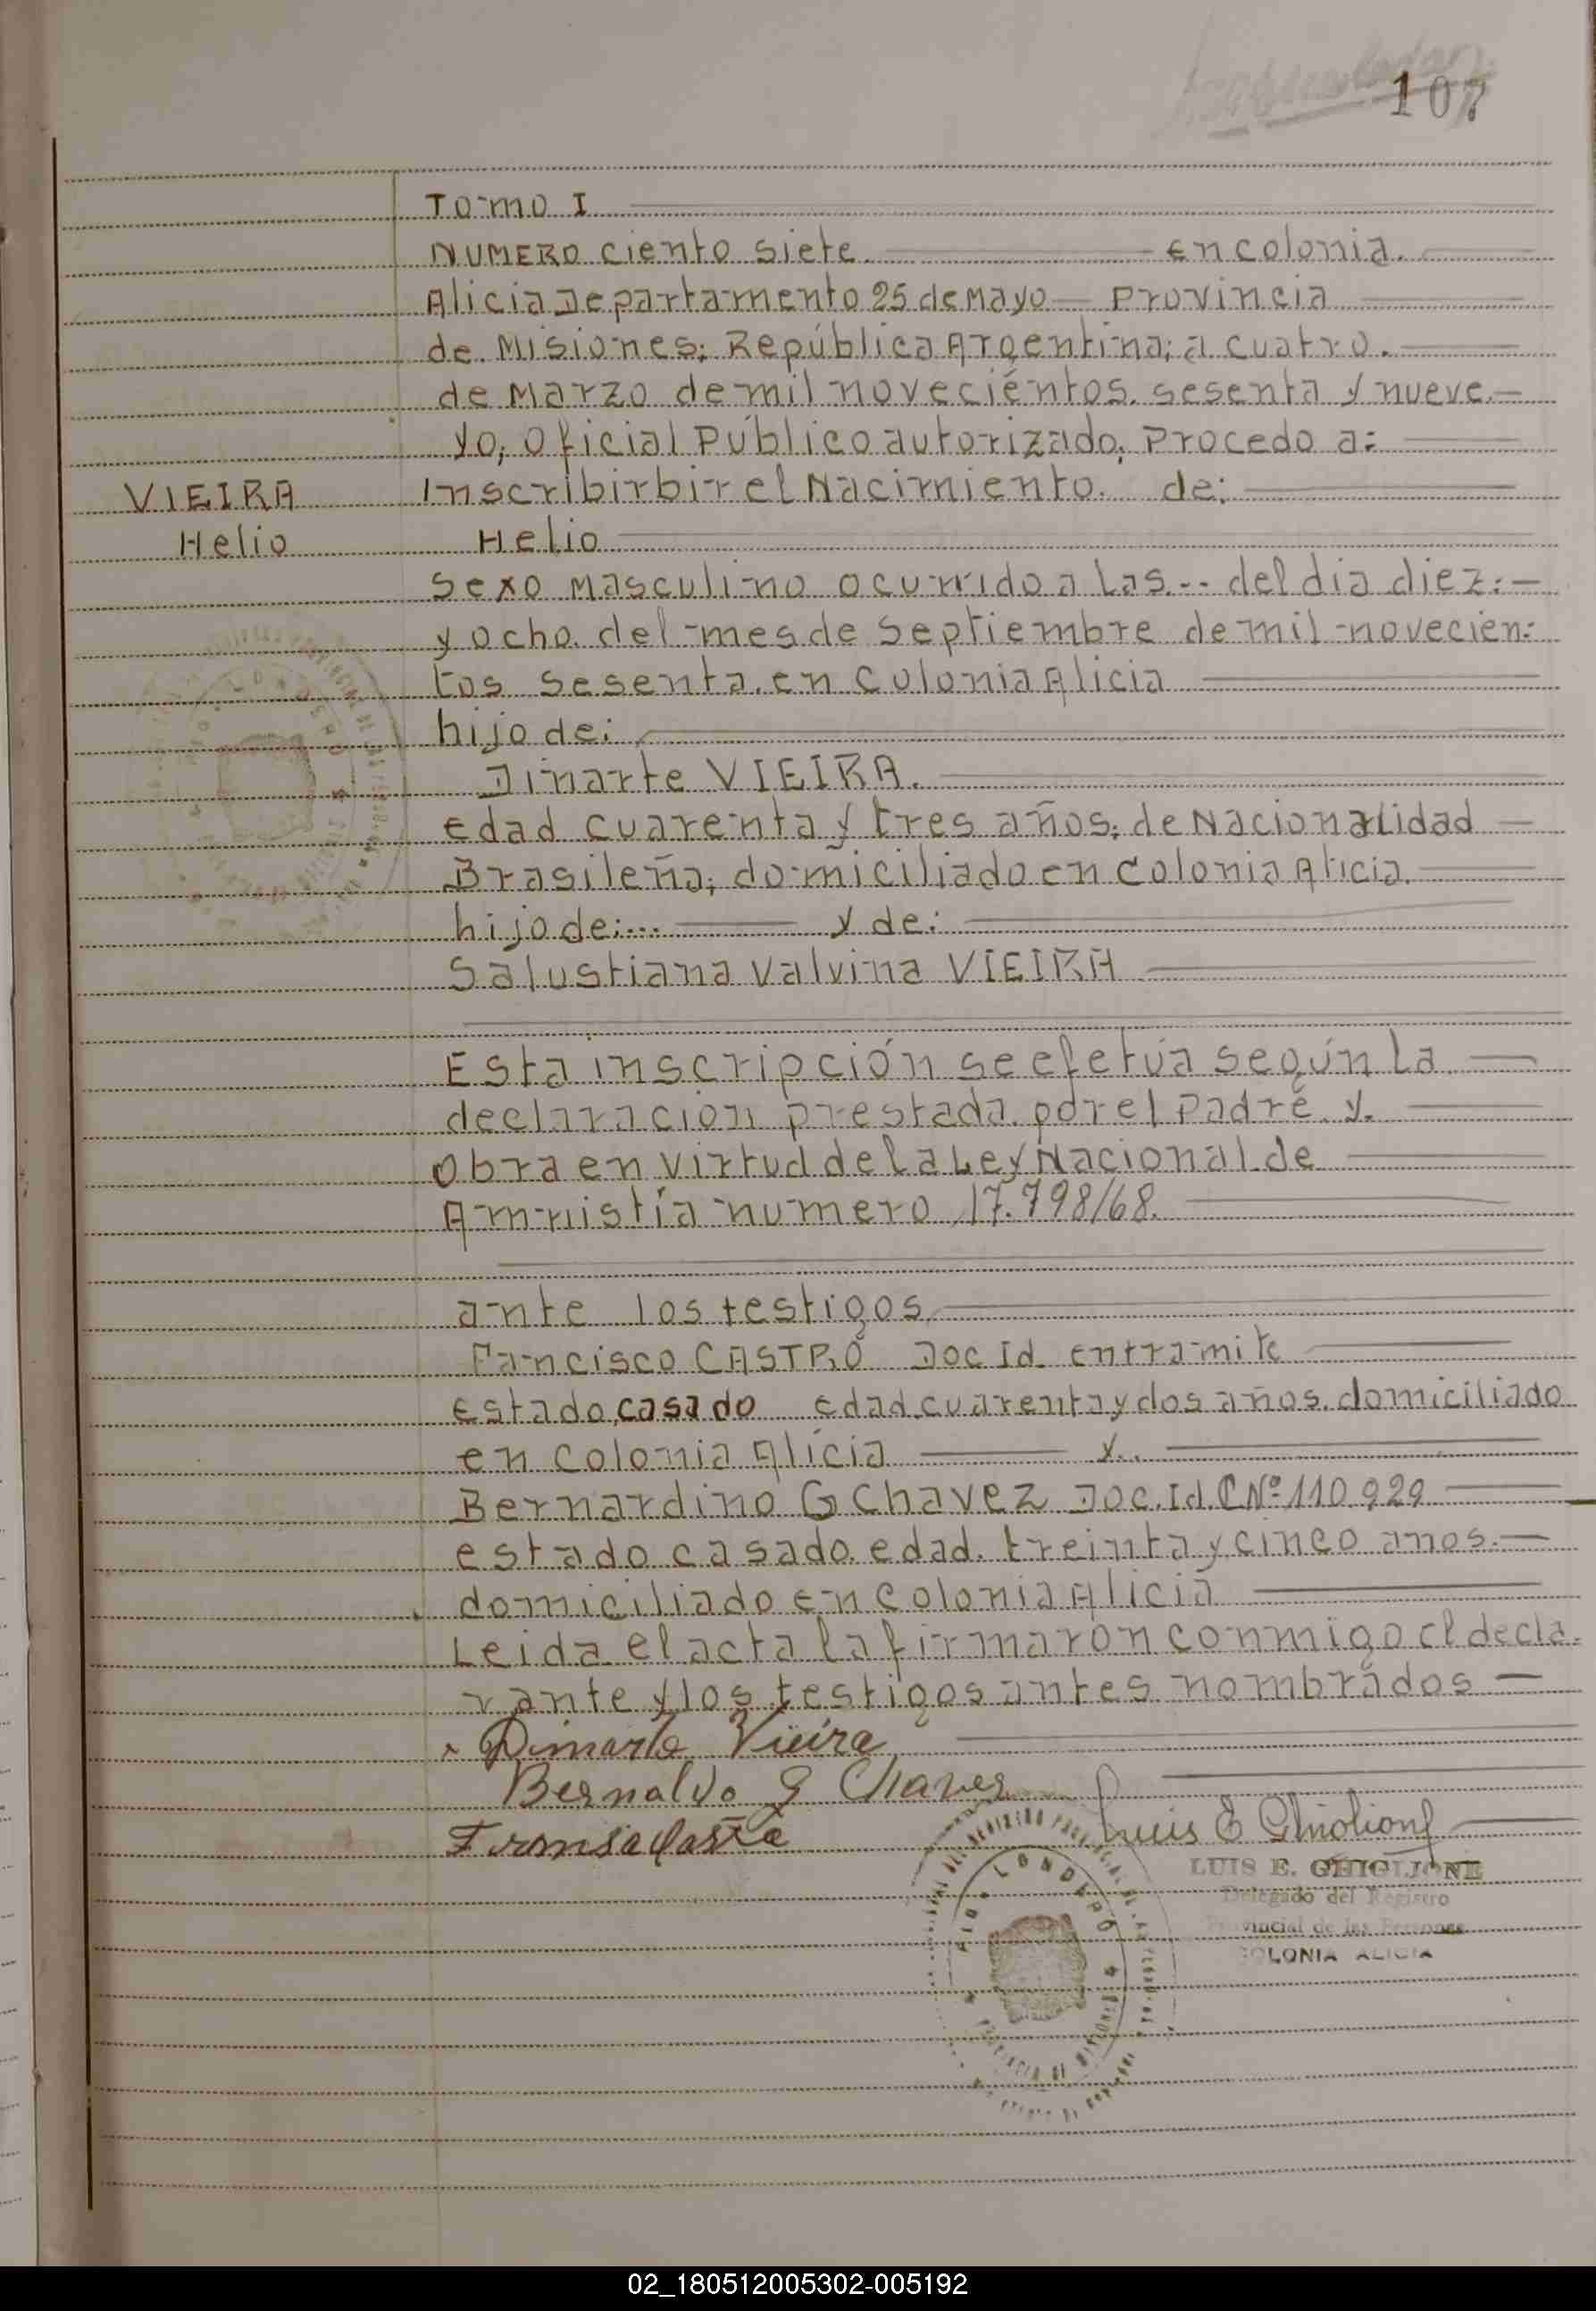 107
TOMO I
NUMERO ciento siete en colonia.
Alicia Departamento 25 de Mayo Provincia
de Misiones; República Argentina; a cuatro.
de Marzo de mil noveciéntos sesenta y nueve.
yo; Oficial Público autorizado; Procedo a:
VIEIRA Inscribirbir el Nacimiento. de:
Helio Helio
sexo Masculino ocurrido a las... del dia diez.
y ocho. del mes de Septiembre de mil novecien-
tos sesenta. en Colonia Alicia
hijo de:
Dinarte VIEIRA.
edad cuarenta y tres años; de Nacionalidad
Brasileña; domiciliado en Colonia Alicia.
hijo de:... y de:
Salustiana Valvina VIEIRA
Esta inscripción se efetúa según la
declaración prestada por el padre y.
Obra en virtud de la Ley Nacional de
Amnistía numero 17.798/68.
ante los testigos
Fancisco CASTRO Doc Id en tramite
estado casado edad cuarenta y dos años. domiciliado
en Colonia Alicia y..
Bernardino G Chavez Doc. Id. C Nº 110.929
estado casado. edad. treinta y cinco anos.
domiciliado en Colonia Alicia
Leida el acta la firmaron conmigo el decla-
rante y los testigos antes nombrados
Dinarte Vieira
Bernaldo G Chaves
Luis E Ghiglione
LUIS E. GHIGLIONE
Delegado del Registro
Provincial de las Personas
COLONIA ALICIA
02_180512005302-005192